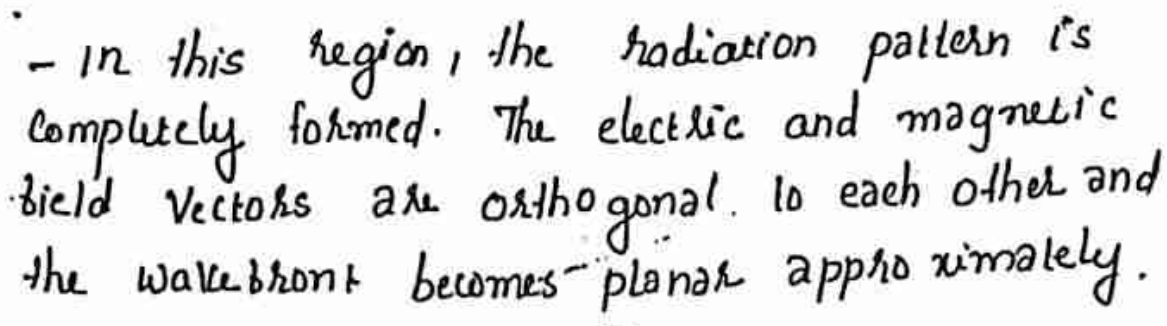 - In this region, the radiation pattern is
completely formed. The electric and magnetic
field vectors are orthogonal. to each other and
the wavefront becomes planar approximately.